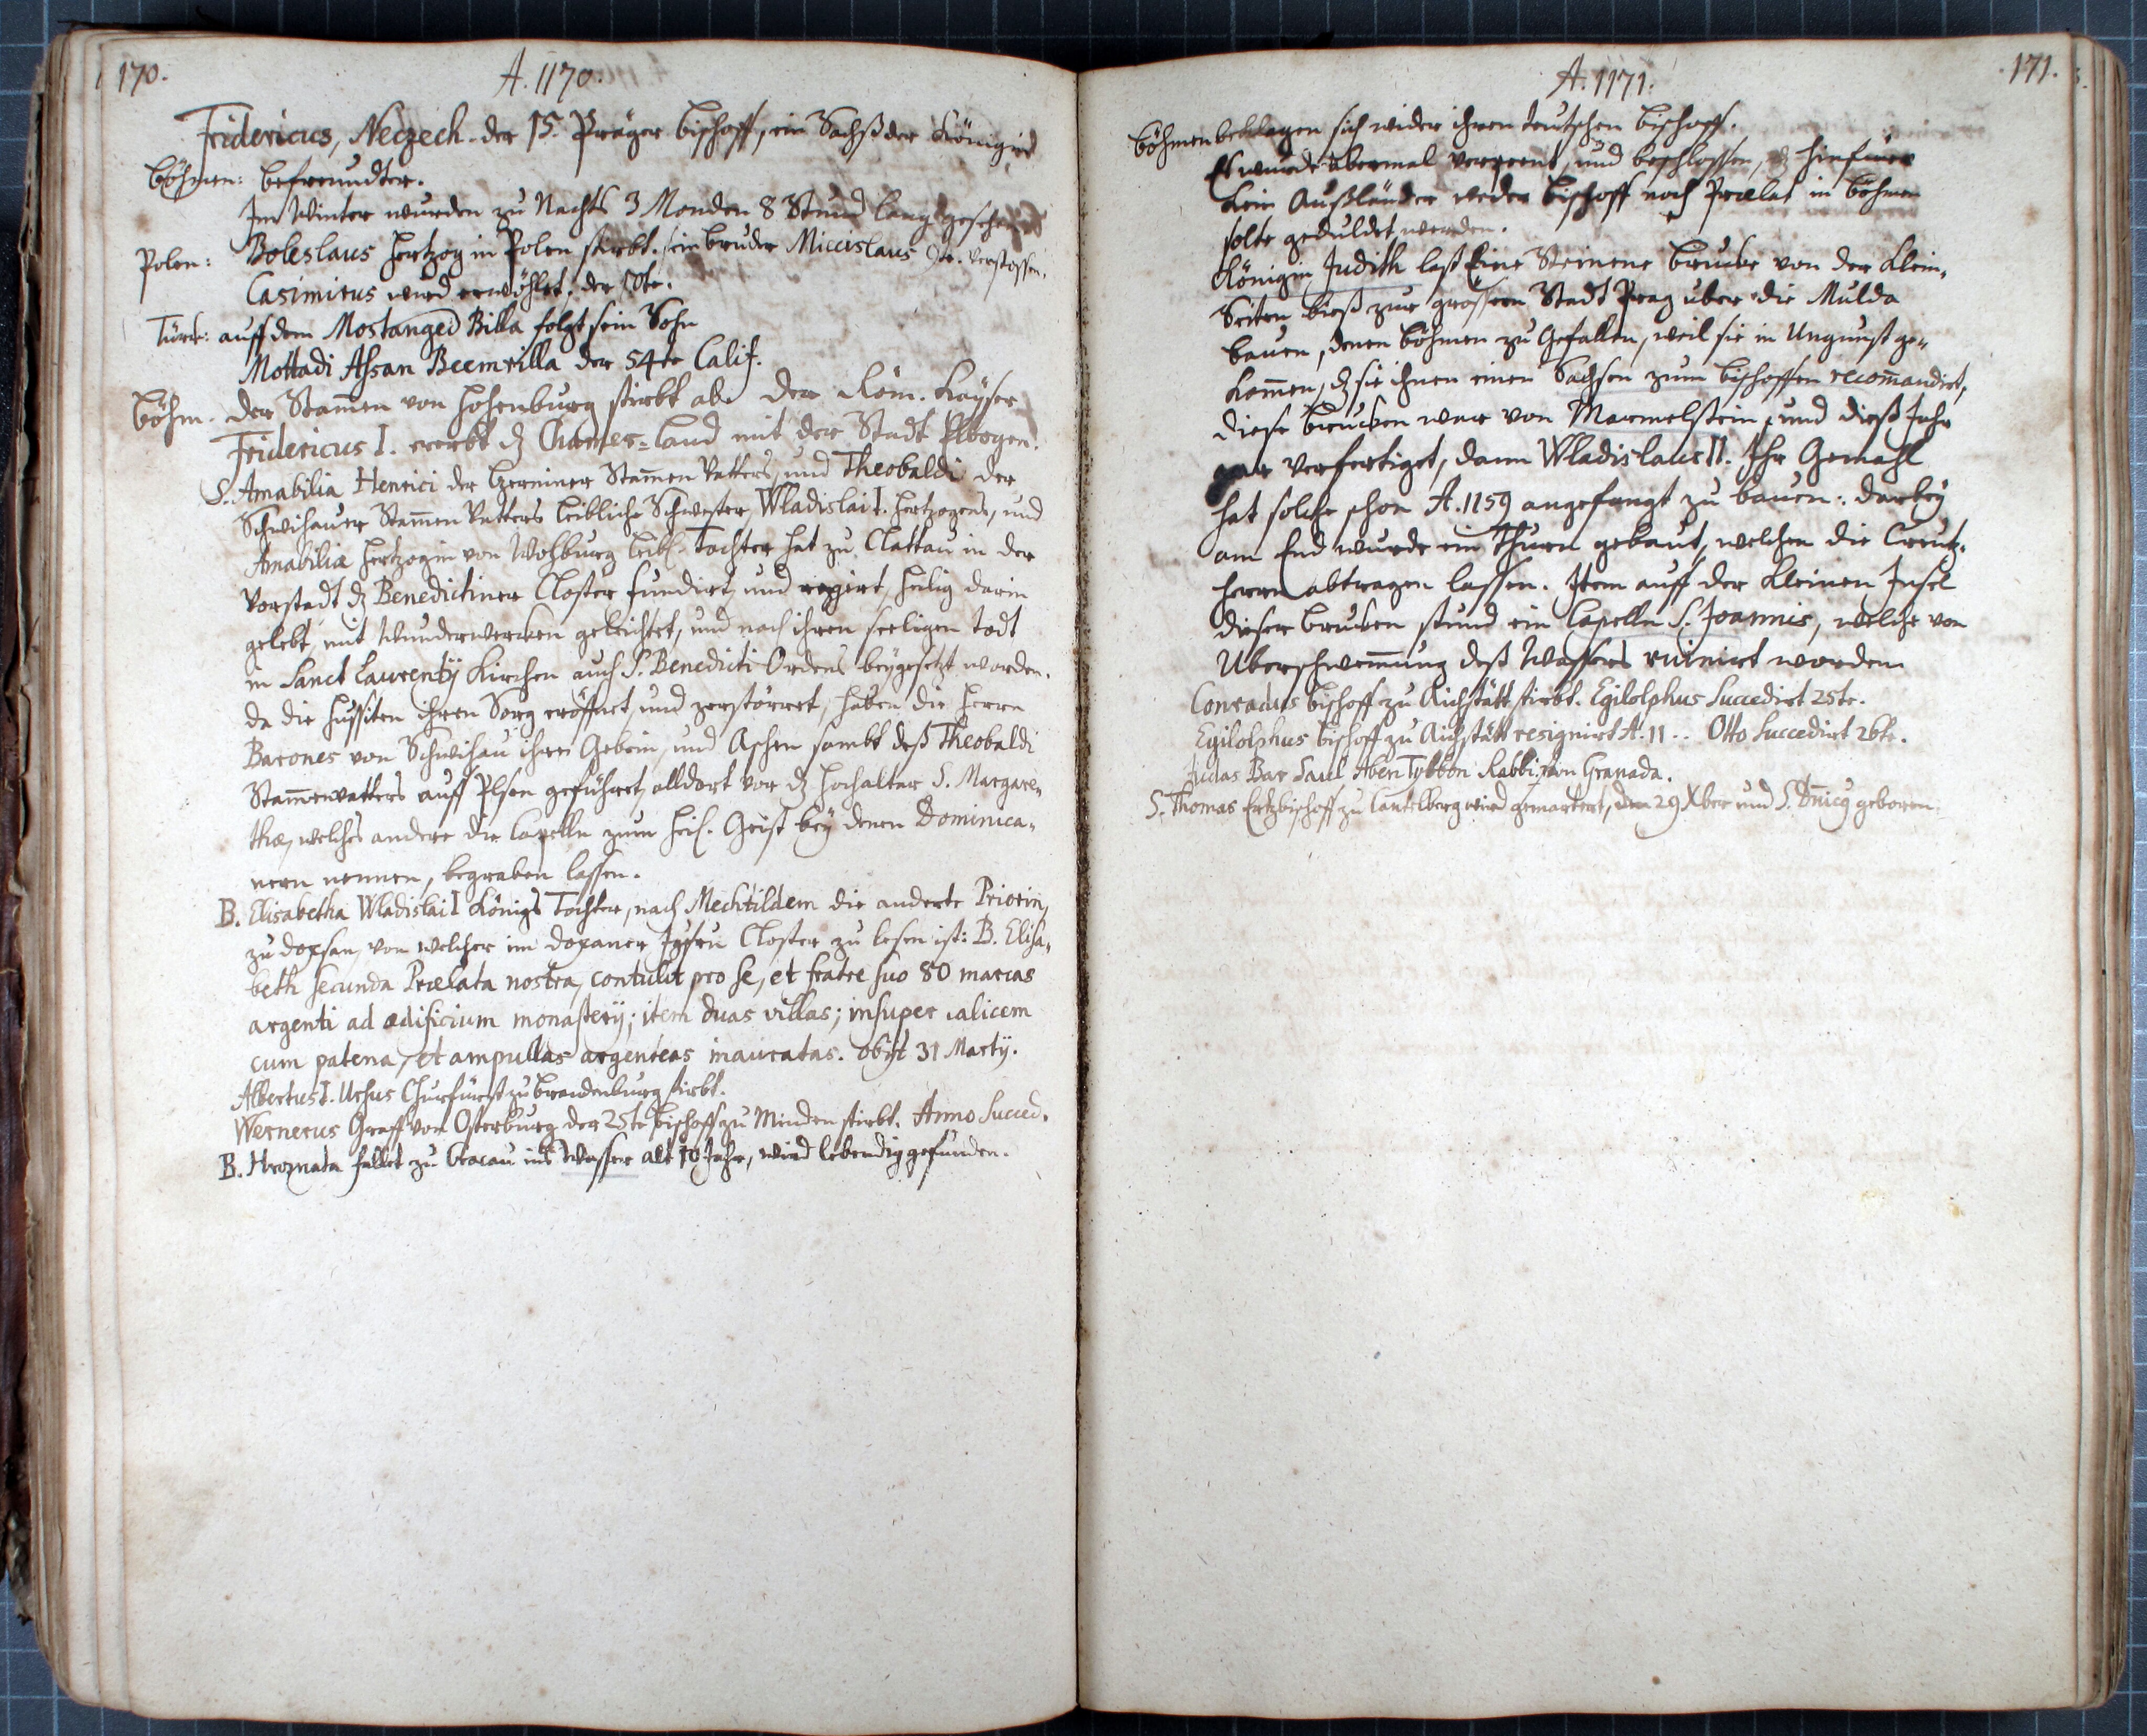 170.
A. 1170.
Fridericus, Neczech der 15. Präger bischoff, ein Sachß der Königin
böhmen: befreundter.
Im Winter wurden zu Nachts 3 Monden 8 Stund lang
Polen: Boleslaus Hertzog in Polen stirbt. sein bruder Miccislaus verstossen.
Casimirus wird erwöhlet. der
Türck: auff dem Mostanged Billa folgt sein Sohn
Mottadi Assan Beemrilla der 54te Calif.
böhm. der Stammen von Hohenburg stirbt ab. der Röm. Kayser
Fridericus I. ererbt dz land mit der Stadt Elbogen.
S. Amabilia Henrici der Czerniner Stammen Vatters, und Theobaldi der
Schwihauer Stammen Vatters leibliche Schwester, Wladislai I. Hertzogens, und
Amabiliæ Hertzogin von Wohburg leibl. Tochter hat zu Clattau in der
Vorstadt dz Benedictiner Closter fundirt, und regirt, heilig darin
gelebt, mit Wunderwercken geleichtet, und nach ihren seeligen todt
in Sanct Laurentÿ Kirchen auch S. Benedicti Ordens beygesetzt worden.
da die Hussiten ihren Sarg eröffnet, und zerstörret, haben die Herrn
Barones von Schwihau ihre Gebein, und Aschen sambt deß Theobaldi
Stammvatters auff Plsen geführet, alldort vor dz hochaltar S. Margare„
thæ, welches andere die Capelln zum Heil. Geist bey denen Dominica„
nern nennen, begraben lassen.
B. Elisabetha Wladislai I Königs Tochter, nach Mechtildem die anderte Priorin,
zu doxsan, von welcher im doxaner Closter zu lesen ist: B. Elisa„
beth secunda Prælata nostra, contulit pro se, et fratre suo 80 marcas
argenti ad ædificium monasterÿ; item duas villas; insuper calicem
cum patena, et ampullas argenteas inauratas. obÿt 31 Martÿ.
Albertus I. Ursus Churfürst zu brandenburg stirbt.
Wernerus Graff von Osterburg der 25te bischoff zu Minden stirbt. Anno Succed.
B. Hroznata fallet zu Cracau ins Wasser alt 10 Jahr, wird lebendig gefunden.
171.
A. 1171.
böhmen beklagen sich wider ihren teutschen bischoff.
Es wurde abermal und beschlossen, dz hinfüro
kein Außländer weder bischoff noch Prælat in böhmen
solte geduldet werden.
Königin Judith last Eine Steinene brucke von der klein„
Seiten biß zur grossern Stadt Prag uber die Mulda
bauen, denen böhmen zu Gefallen, weil sie in Ungunst ge„
kommen, dz sie ihnen einen Sachsen zum bischoffen recommandirt,
diese brucken war von Marmelstein, und dieß Jahr
verfertiget, dann Wladislaus II. Ihr Gemahl
hat solche schon A. 1159 angefangt zu bauen: darbey
am End wurde ein Thurn gebaut, welchen die Creutz„
herrn abtragen lassen. Item auff der kleinen Insel
dieser brucken stund ein Capelln S. Joannis, welche von
Uberschwemmung deß Wassers ruinirt worden
Conradus bischoff zu Aichstätt stirbt. Egilolphus Succedirt 25te.
Egilolphus bischoff zu Aichstätt resignirt A. 11.. Otto Succedirt 26te.
Judas Bar Saul Aben Tybbon Rabbi, von Granada.
S. Thomas Ertzbischoff zu Cantelberg wird gemartert, den 29 Xber und S. Dnicq geboren.